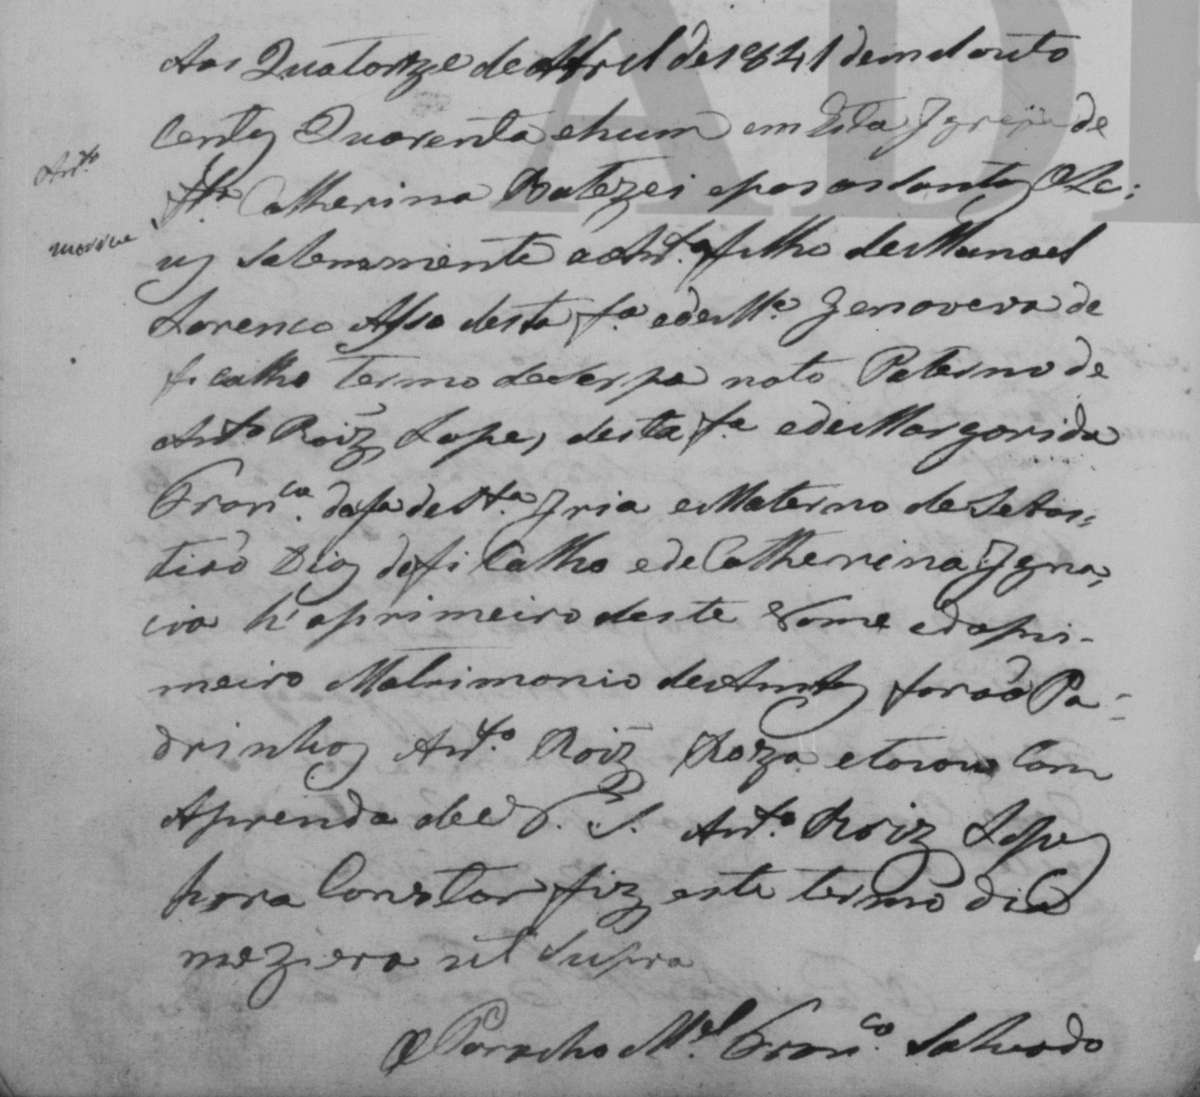 Aos Quatorze de Abril de 1841 de mil outo
centos Quarenta e hum em Esta Igreja de
Ant.º
St.ª Catherina Batezei e pus os Santos Ole:
morreu
us Salenemente a Ant.º filho de Manoel
Lorenco Afso desta f.ª e de M.ª Genoveva de
ficalho termo de Serpa neto Paterno de
Ant.º Roiz Lopes desta f.ª e de Margarida
Fran.ca da fa de St.ª Iria e Materno de Sebas:
tiaõ Dias de fi Calho e de Catherina Igna,
cia hé a primeiro deste Nome e do pri-
meiro Matrimonio de Ambos foraõ Pa-
drinhos Ant.º Roiz Roza e tocou Com
Aprenda de S. Ant.º Roiz Lopes
para Constar fiz este termo dia
mez i era ut Supra
O Parocho M.el Fran.co Salvado